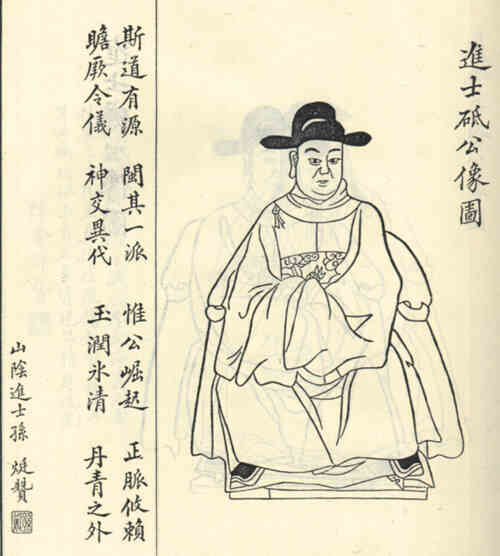 進士砥公像圖
斯道有源 閩其一派 惟公崛起 正脈攸賴
瞻厥令儀 神交異代 玉潤氷清 丹青之外
山陰進士孫 贊